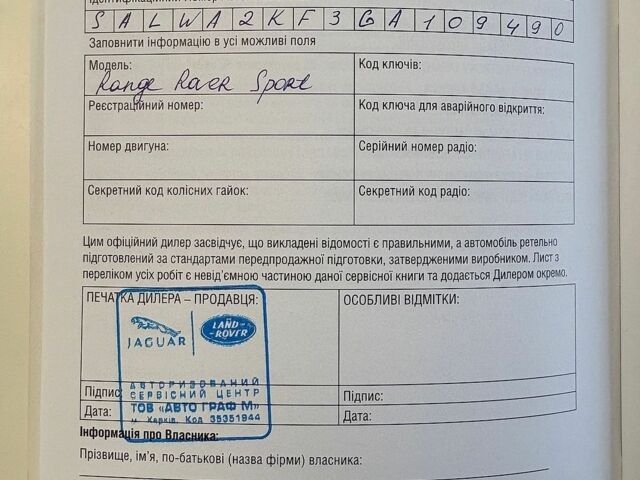 Ідентифікаційний номер
S A L W A 2 K F 3 G A 1 0 9 4 9 0
Заповнити інформацію в усі можливі поля
Модель: Код ключів:
Range Rover Sport
Реєстраційний номер: Код ключа для аварійного відкриття:
Номер двигуна: Серійний номер радіо:
Секретний код колісних гайок: Секретний код радіо:
Цим офіційний дилер засвідчує, що викладені відомості є правильними, а автомобіль ретельно
підготовлений за стандартами передпродажної підготовки, затвердженими виробником. Лист з
переліком усіх робіт є невід’ємною частиною даної сервісної книги та додається Дилером окремо.
ПЕЧАТКА ДИЛЕРА – ПРОДАВЦЯ: ОСОБЛИВІ ВІДМІТКИ:
JAGUAR LAND ROVER
АВТОРИЗОВАНИЙ
СЕРВІСНИЙ ЦЕНТР
ТОВ «АВТО ГРАФ М»
м. Харків, Код 35351944
Підпис: Підпис:
Дата: Дата:
Інформація про Власника:
Прізвище, ім’я, по-батькові (назва фірми) власника: